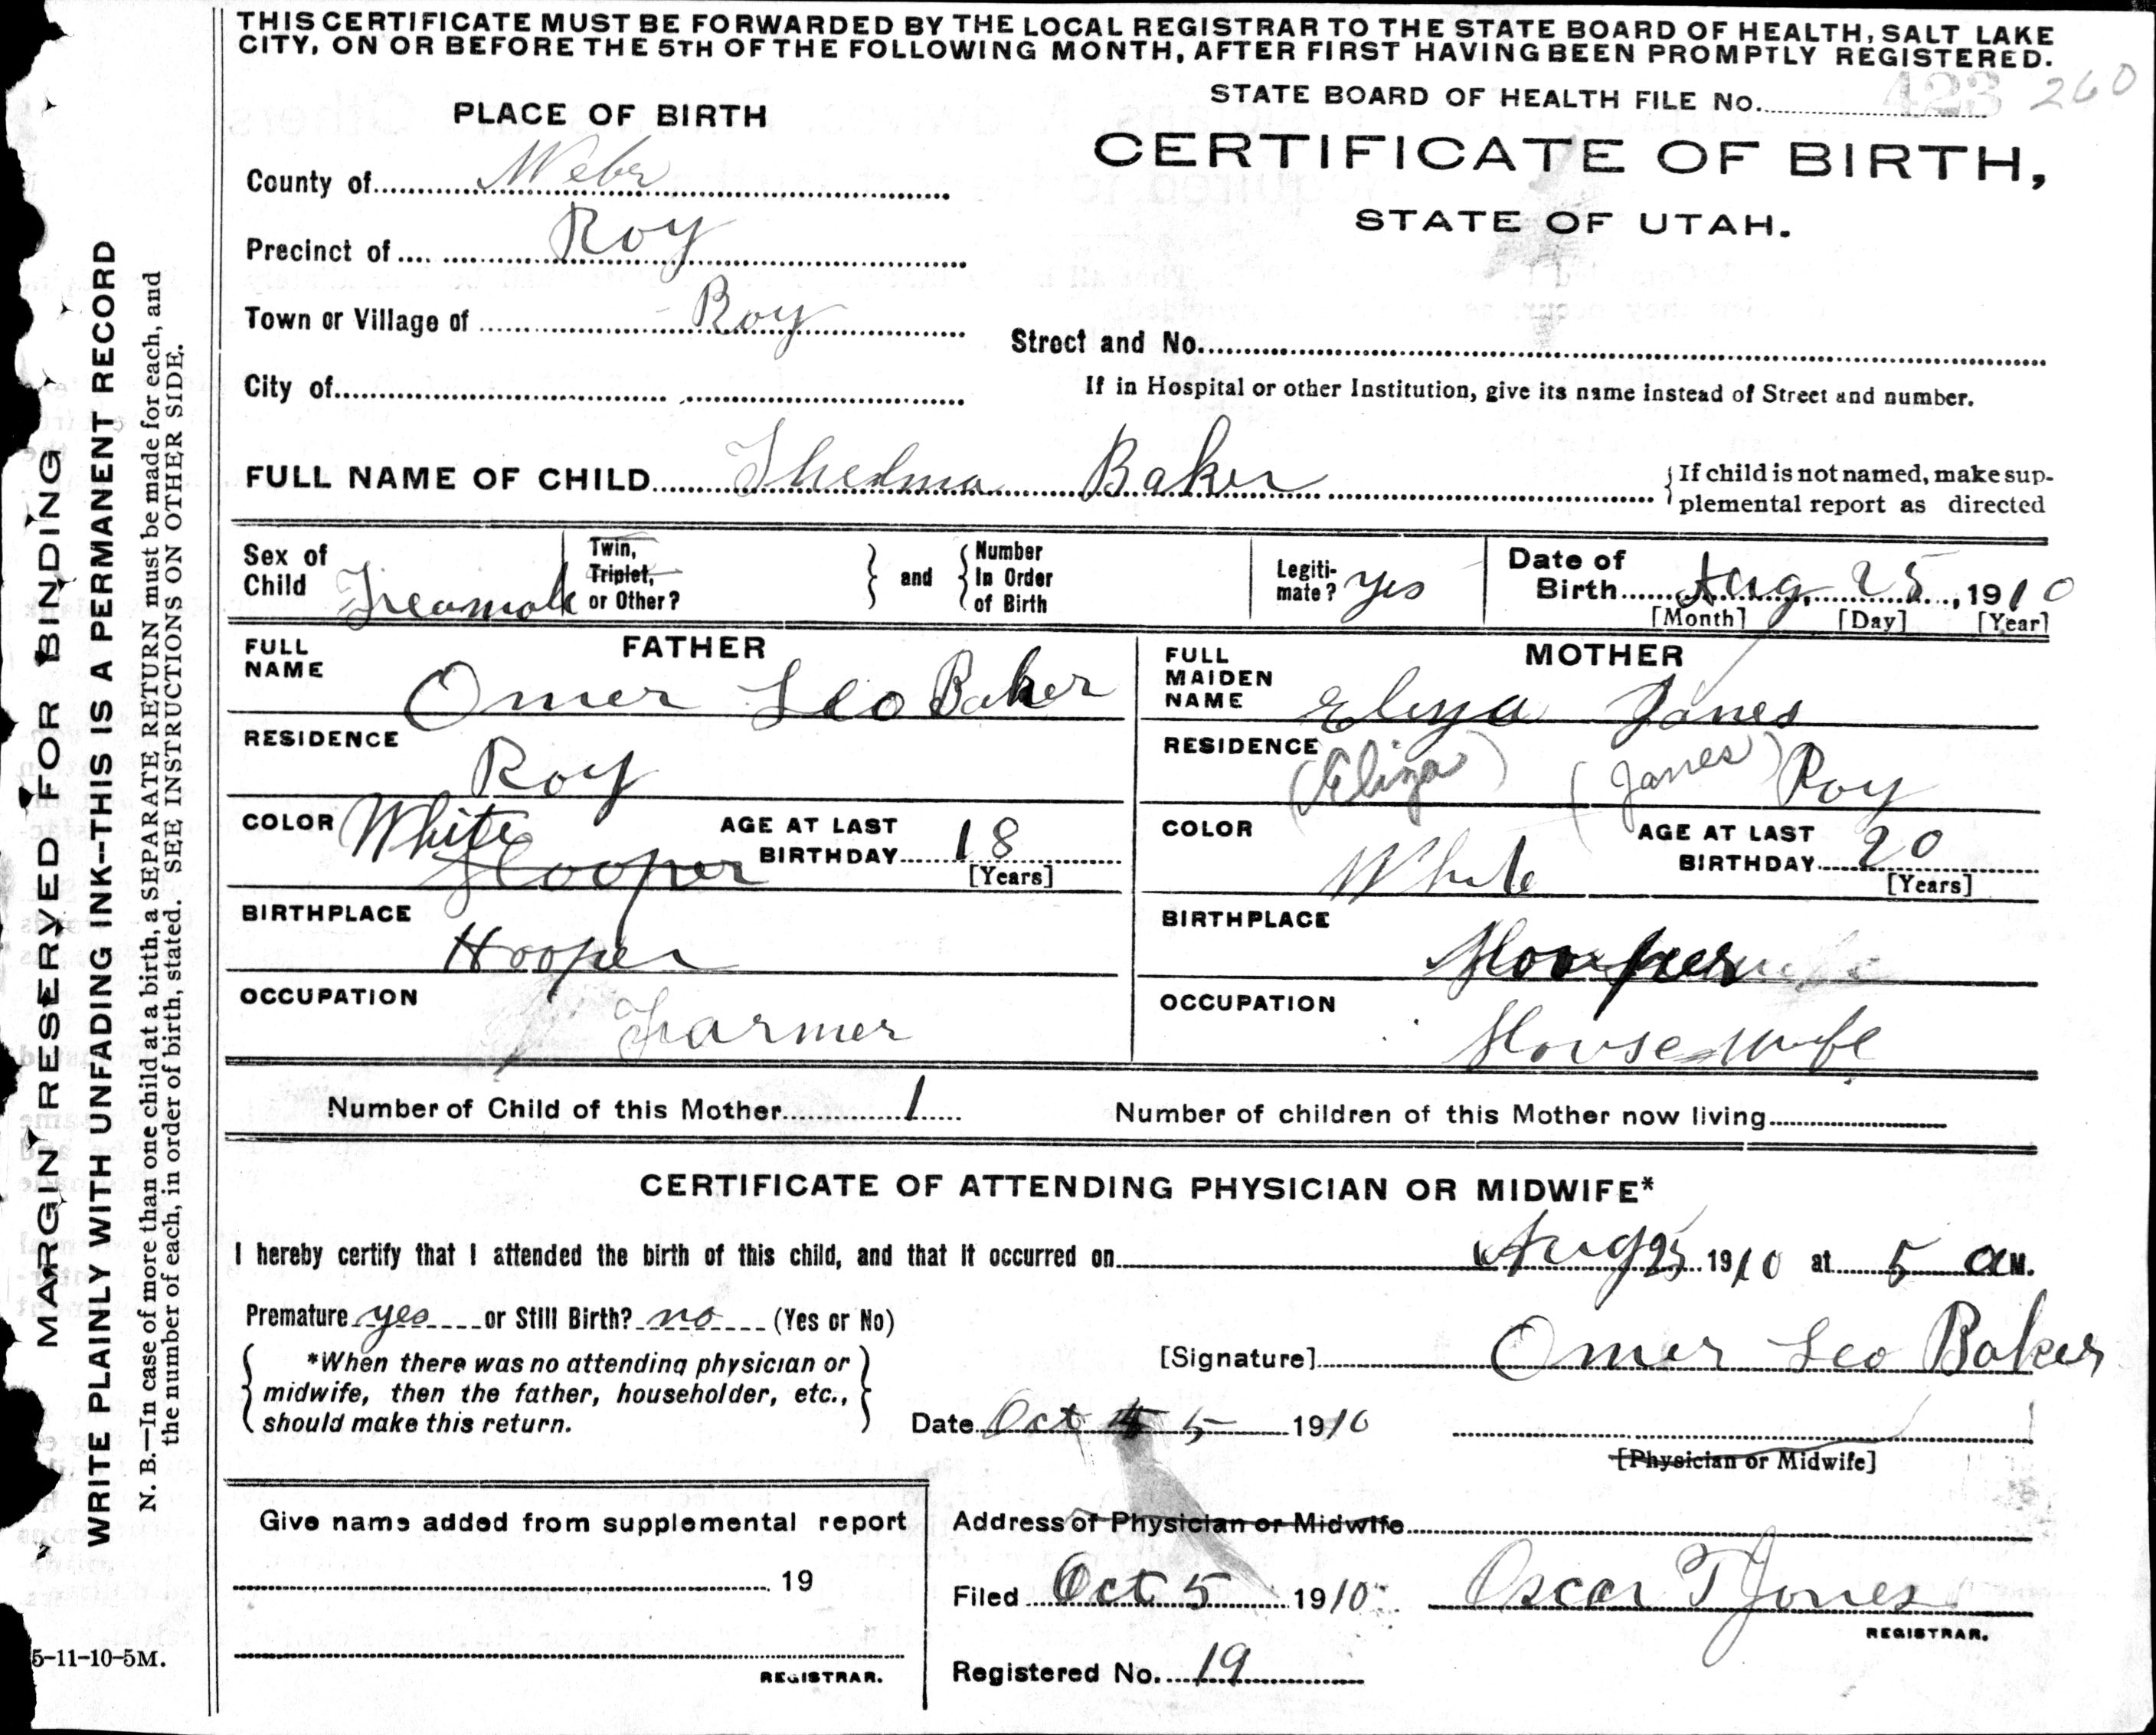 THIS CERTIFICATE MUST BE FORWARDED BY THE LOCAL REGISTRAR TO THE STATE BOARD OF HEALTH, SALT LAKE
CITY, ON OR BEFORE THE 5TH OF THE FOLLOWING MONTH, AFTER FIRST HAVING BEEN PROMPTLY REGISTERED.
STATE BOARD OF HEALTH FILE No. 423 260
PLACE OF BIRTH
CERTIFICATE OF BIRTH,
STATE OF UTAH.
County of Webr
Precinct of Roy
Town or Village of Roy
Street and No.
City of
If in Hospital or other Institution, give its name instead of Street and number.
FULL NAME OF CHILD Thelma Baker
{If child is not named, make sup-
plemental report as directed
Sex of Child Feamale
Twin, Triplet, or Other?
and
Number In Order of Birth
Legiti-mate? yes
Date of Birth Aug. 25, 1910
[Month] [Day] [Year]
FATHER
FULL NAME Omer Leo Baker
RESIDENCE Roy
COLOR White
Hooper
AGE AT LAST BIRTHDAY 18
[Years]
BIRTHPLACE Hooper
OCCUPATION Farmer
MOTHER
FULL MAIDEN NAME Eliza Jones
RESIDENCE (Eliza) (Janes) Roy
COLOR White
AGE AT LAST BIRTHDAY 20
[Years]
BIRTHPLACE Hooper
OCCUPATION Housewife
Number of Child of this Mother 1
Number of children of this Mother now living
CERTIFICATE OF ATTENDING PHYSICIAN OR MIDWIFE*
I hereby certify that I attended the birth of this child, and that it occurred on Aug 25 1910 at 5 a M.
Premature yes or Still Birth? no (Yes or No)
*When there was no attending physician or
midwife, then the father, householder, etc.,
should make this return.
[Signature] Omer Leo Baker
Date Oct 5 1910
[Physician or Midwife]
Give name added from supplemental report
19
REGISTRAR.
Address of Physician or Midwife
Filed Oct 5 1910
Oscar T Jones
REGISTRAR.
Registered No. 19
MARGIN RESERVED FOR BINDING
WRITE PLAINLY WITH UNFADING INK--THIS IS A PERMANENT RECORD
N. B.—In case of more than one child at a birth, a SEPARATE RETURN must be made for each, and
the number of each, in order of birth, stated. SEE INSTRUCTIONS ON OTHER SIDE.
5-11-10-5M.